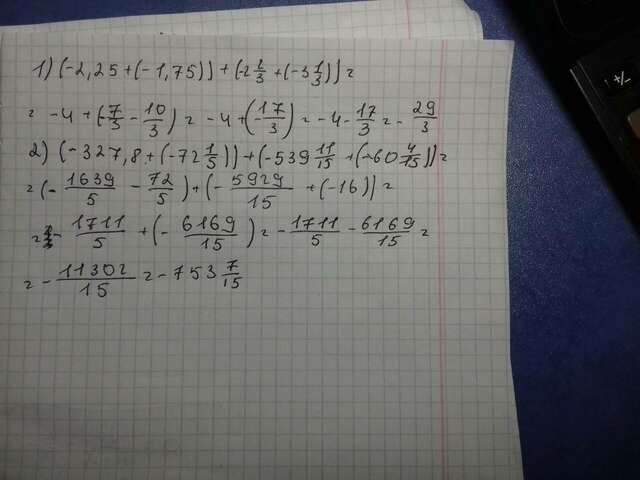 1) (-2,25 + (-1,75)) + (-2 2/3 + (-3 1/3)) =
= -4 + (-7/3 - 10/3) = -4 + (-17/3) = -4 - 17/3 = - 29/3
2) (-327,8 + (-72 1/5)) + (-539 11/15 + (-60 4/15)) =
= (- 1639/5 - 72/5) + (- 5929/15 + (-16)) =
= - 1711/5 + (- 6169/15) = - 1711/5 - 6169/15 =
= - 11302/15 = -753 7/15
+/-